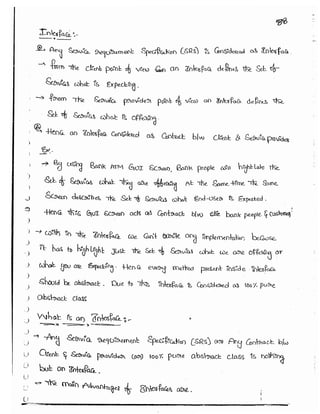 88
Interface :-
Any Service requirement Specification (SRS) is Considered as Interface
→ From the Client point of view an Interface defines the Set of
Services what is Expecting.
→ From the Service provider point of view an Interface defines the
Set of Services what is offering
Hence an Interface Considered as Contract b/w Client & Service provider
Ex:-
→ By using Bank ATM GUI Screen, Bank people are highlight the
Set of Services what they are offering At the Same time the Same
Screen describes the Set of Services what End-user is Expected.
Hence this GUI Screen acts as Contract b/w bank people & Customer
→ with in the Interface we Can't write any implementation because
it has to highlight Just the Set of Services what we are offering or
what you are Expecting. Hence every method present inside Interface
Should be abstract. Due to this, Interface is Considered as 100% pure
abstract class
What is an Interface :-
→ Any Service requirement Specification (SRS) or Any Contract b/w
Client & Service provider or 100% pure abstract class is nothing
but an Interface.
→ The main Advantages of Interfaces are.